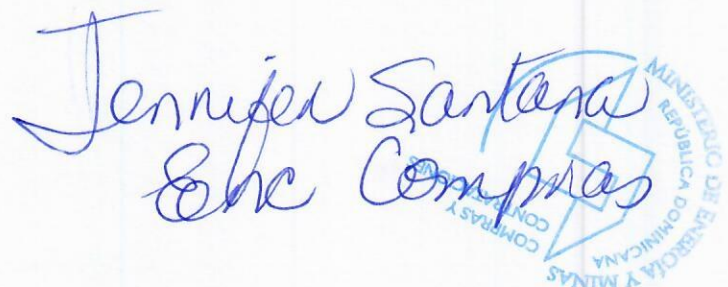 Jennifer Santana
Enc Compras
MINISTERIO DE ENERGÍA Y MINAS
REPÚBLICA DOMINICANA
COMPRAS Y
CONTRATACIONES